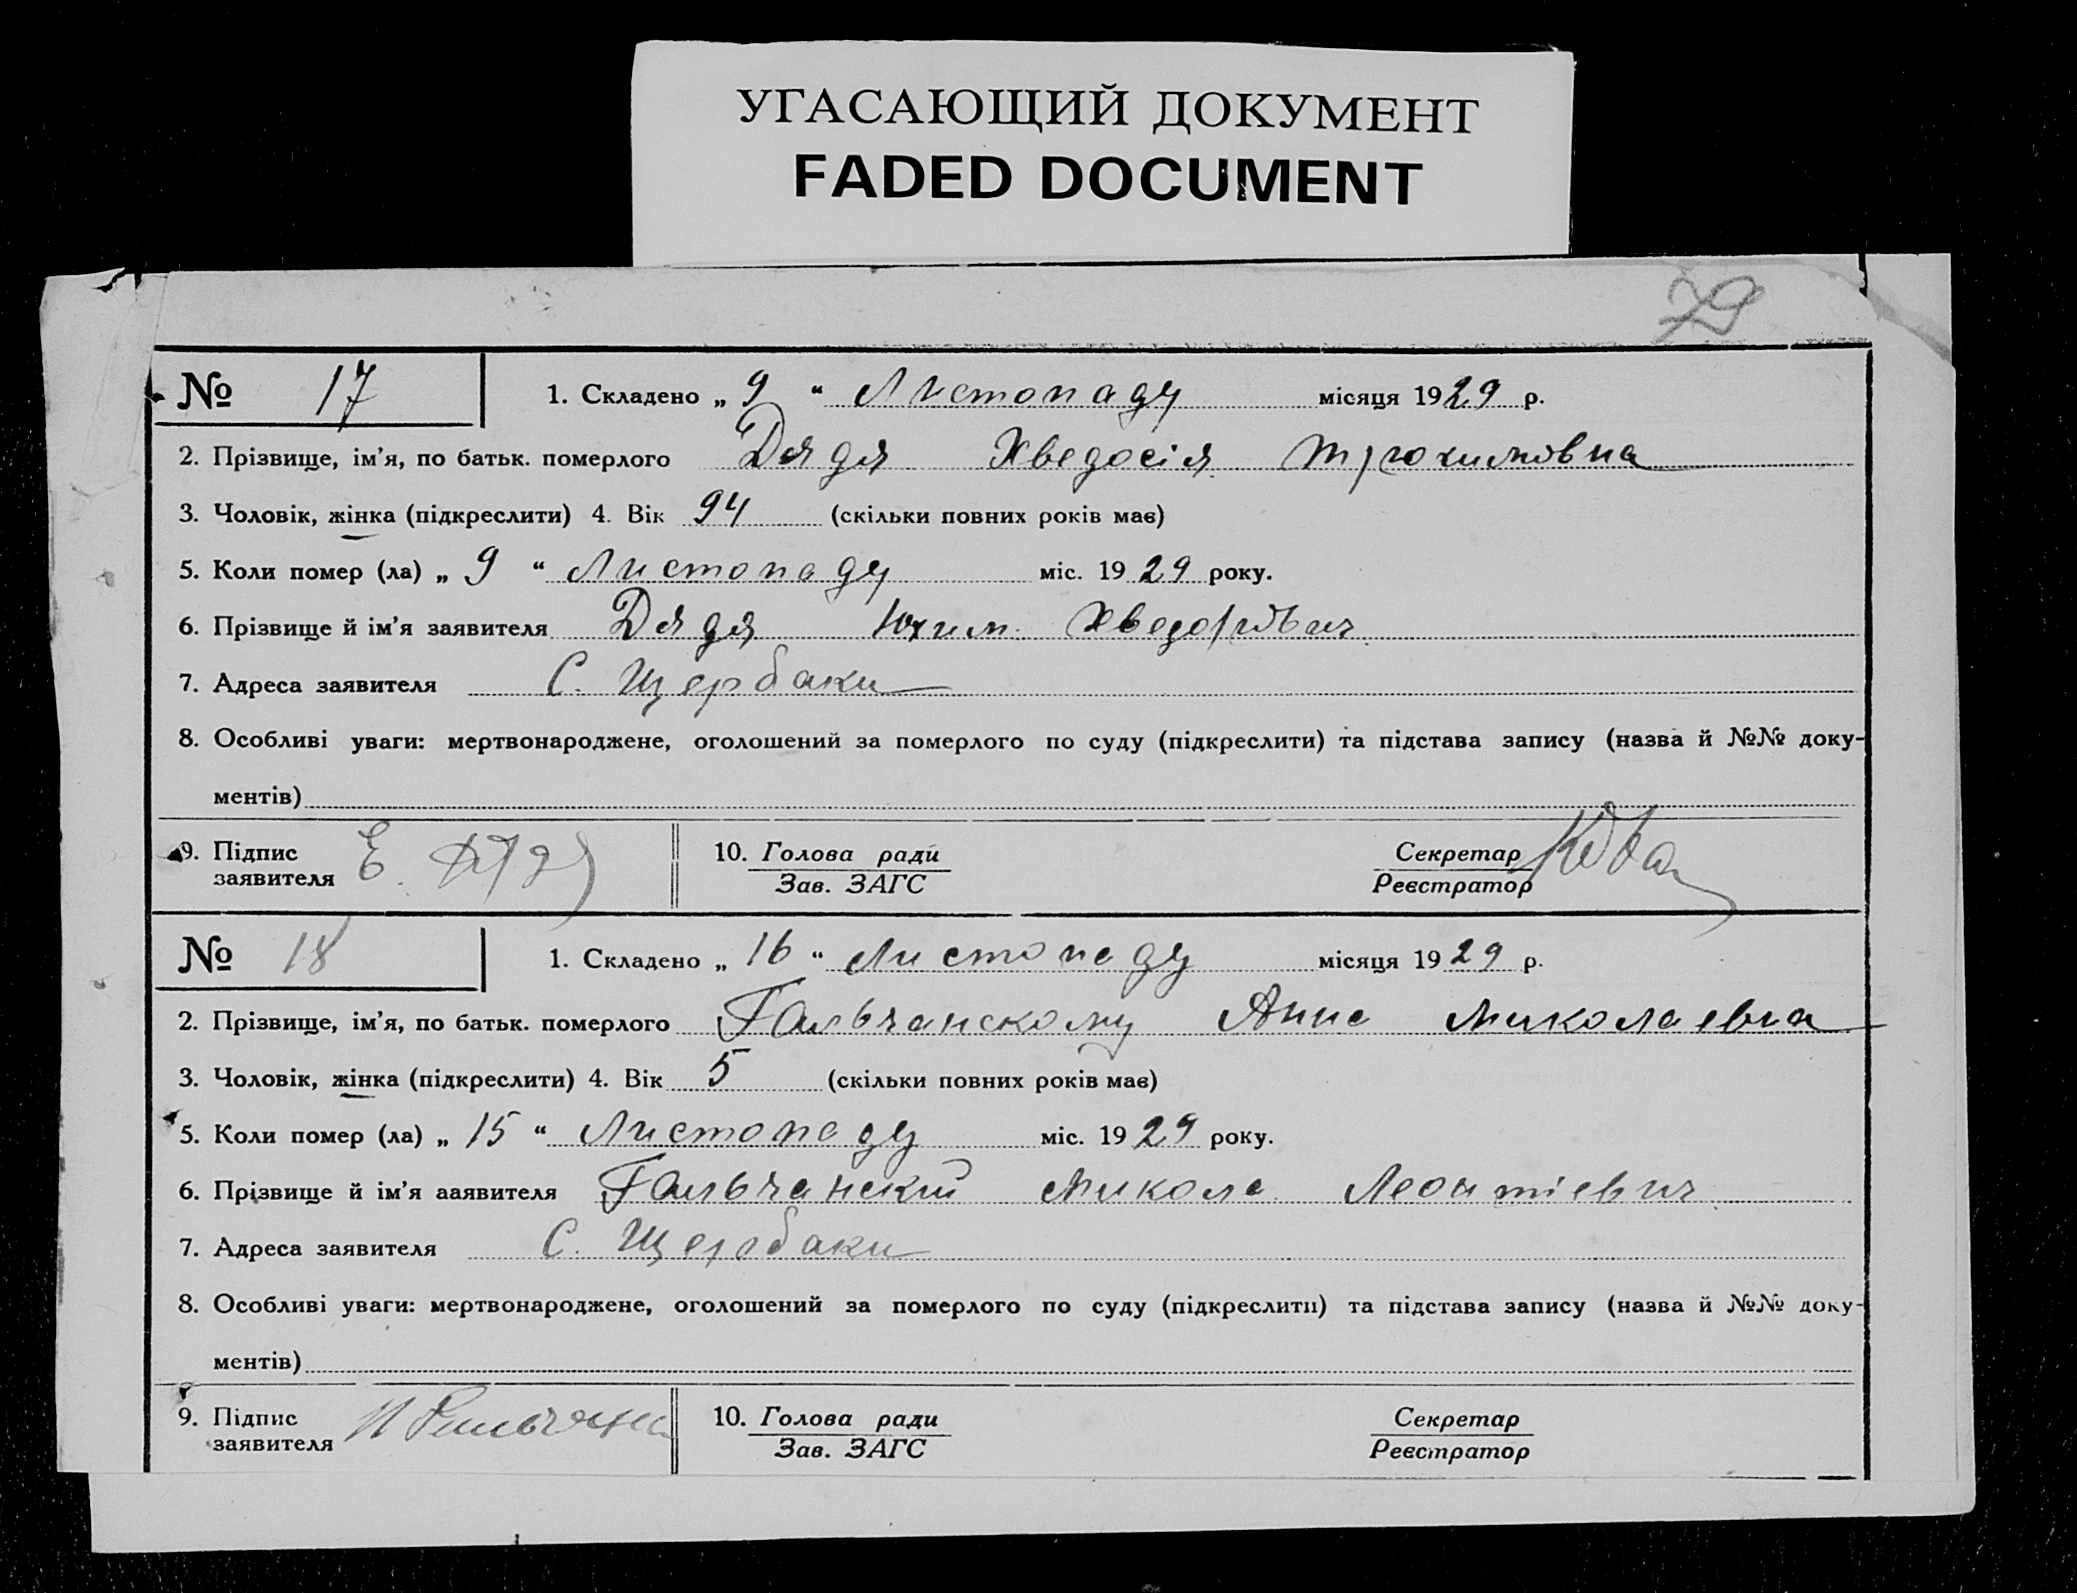 УГАСАЮЩИЙ ДОКУМЕНТ
FADED DOCUMENT
79
№ 17 1. Складено „ 9 “ Листопаду місяця 1929 р.
2. Прізвище, ім'я, по батьк. померлого Дядя Хведосія Трохимовна
3. Чоловік, жінка (підкреслити) 4. Вік 94 (скільки повних років має)
5. Коли помер (ла) „ 9 “ Листопаду міс. 1929 року.
6. Прізвище й ім'я заявителя Дядя Юхим Хведорович
7. Адреса заявителя С. Щербаки
8. Особливі уваги: мертвонароджене, оголошений за померлого по суду (підкреслити) та підстава запису (назва й №№ доку-
ментів)
9. Підпис заявителя Е. 10. Голова ради Секретар
Зав. ЗАГС Реєстратор
№ 18 1. Складено „ 16 “ Листопаду місяця 1929 р.
2. Прізвище, ім'я, по батьк. померлого Гальчанскому Анна Миколаевна
3. Чоловік, жінка (підкреслити) 4. Вік 5 (скільки повних років має)
5. Коли помер (ла) „ 15 “ Листопаду міс. 1929 року.
6. Прізвище й ім'я ааявителя Гальчанский Микола Леонтіевич
7. Адреса заявителя С. Щербаки
8. Особливі уваги: мертвонароджене, оголошений за померлого по суду (підкреслити) та підстава запису (назва й №№ доку-
ментів)
9. Підпис заявителя 10. Голова ради Секретар
Зав. ЗАГС Реєстратор